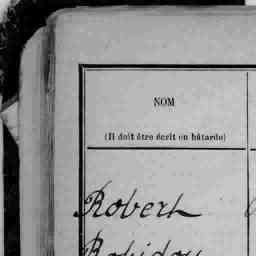 NOM
(Il doit être écrit en bâtarde)
Robert
Robidou